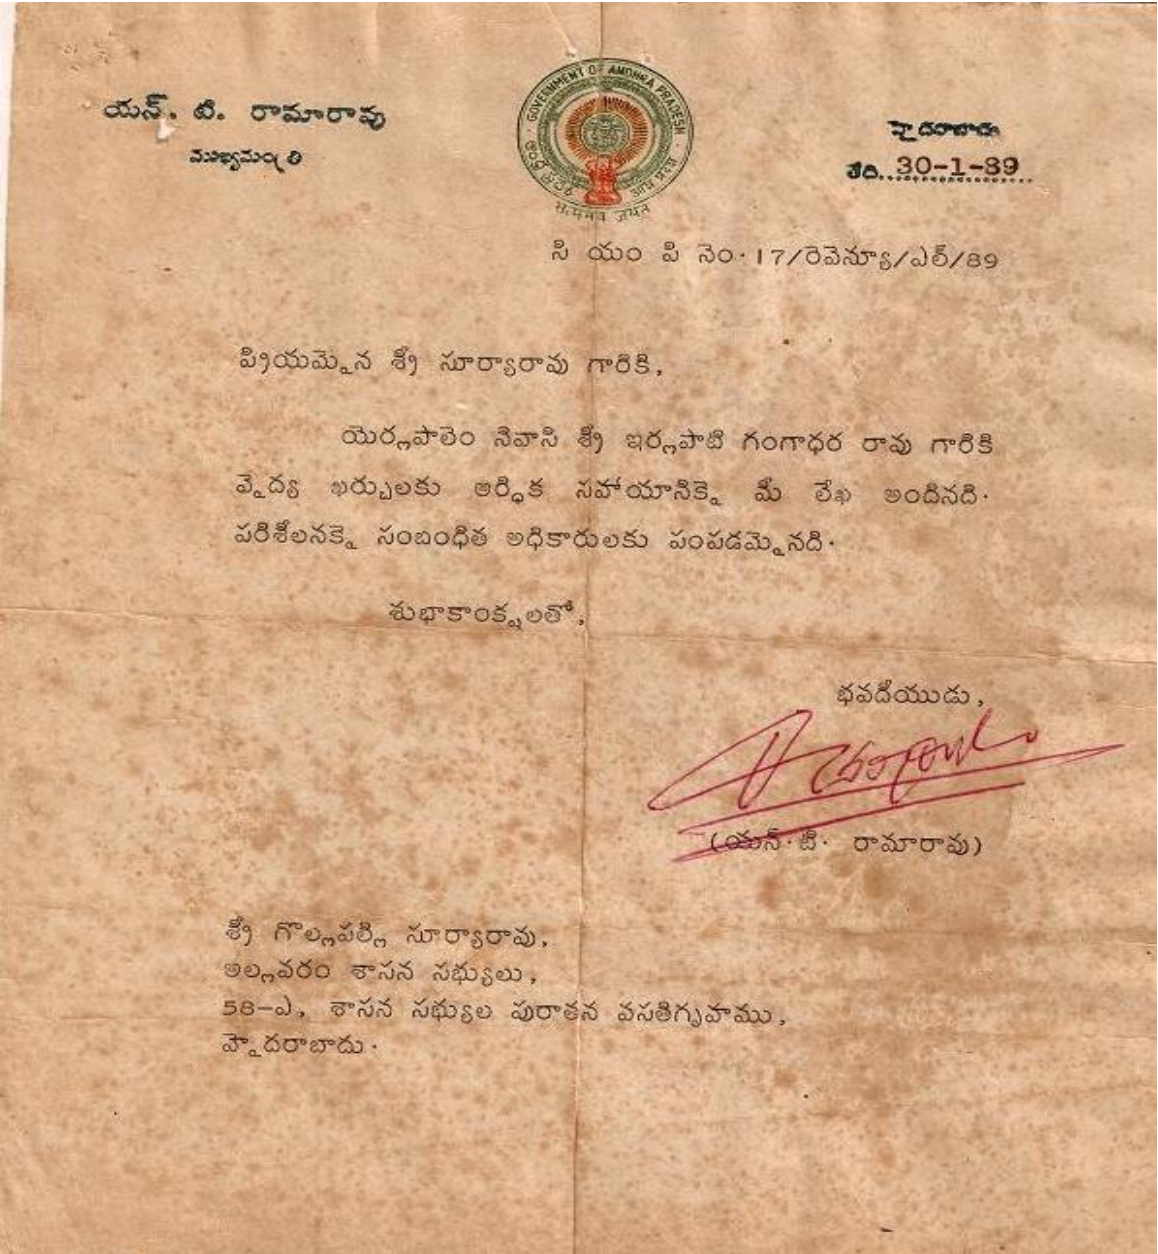 యన్. టి. రామారావు
ముఖ్యమంత్రి
GOVERNMENT OF ANDHRA PRADESH
ఆంధ్ర ప్రదేశ్
आन्ध्र प्रदेश
सत्यमेव जयते
హైదరాబాదు
తేది..30-1-89
సి యం పి నెం. 17/రెవెన్యూ/ఎల్/89
ప్రియమైన శ్రీ సూర్యారావు గారికి,
యెర్లపాలెం నివాసి శ్రీ ఇర్లపాటి గంగాధర రావు గారికి
వైద్య ఖర్చులకు ఆర్థిక సహాయానికై మీ లేఖ అందినది.
పరిశీలనకై సంబంధిత అధికారులకు పంపడమైనది.
శుభాకాంక్షలతో,
భవదీయుడు,
(యన్.టి. రామారావు)
శ్రీ గొల్లపల్లి సూర్యారావు,
అల్లవరం శాసన సభ్యులు,
58-ఎ, శాసన సభ్యుల పురాతన వసతిగృహము,
హైదరాబాదు.